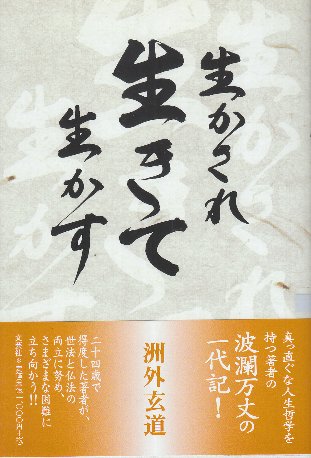 生かされ
生きて
生かす
真っ直ぐな人生哲学を
持つ著者の
波瀾万丈の
一代記！
洲外玄道
二十四歳で
得度した著者が、
世法と仏法の
両立に努め、
さまざまな困難に
立ち向かう!!
文芸社